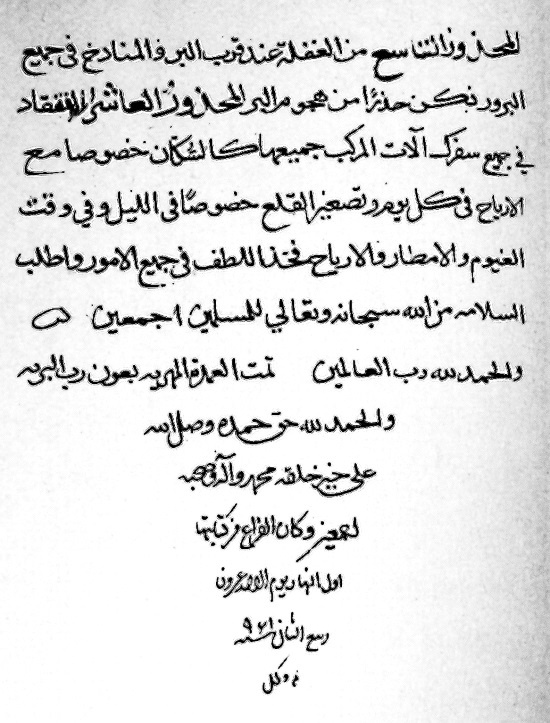 المحذور التاسع من الغفلة عند قرب البر والمنادخ في جميع
البرور نكن حذرًا من هجوم البر المحذورُ العاشر التفقاد
في جميع سفرك آلات المركب جميعها كالسُكّان خصوصا مع
الارياح في كل يوم وتصغير القلع خصوصًا في الليل وفي وقت
الغيوم والامطار والارياح فخذ اللطف في جميع الامور واطلب
السلامه من الله سبحانه وتعالي للمسلمين اجمعين
والحمد لله رب العالمين تمت العمدة المهريه بعون رب البريه
والحمد لله حق حمده وصل الله
علي خير خلقه محمد وآله وصحبه
اجمعين وكان الفراغ من كتابتها
اول النهار يوم الاحد عشرون
ربيع الثاني سنه ٩٦١